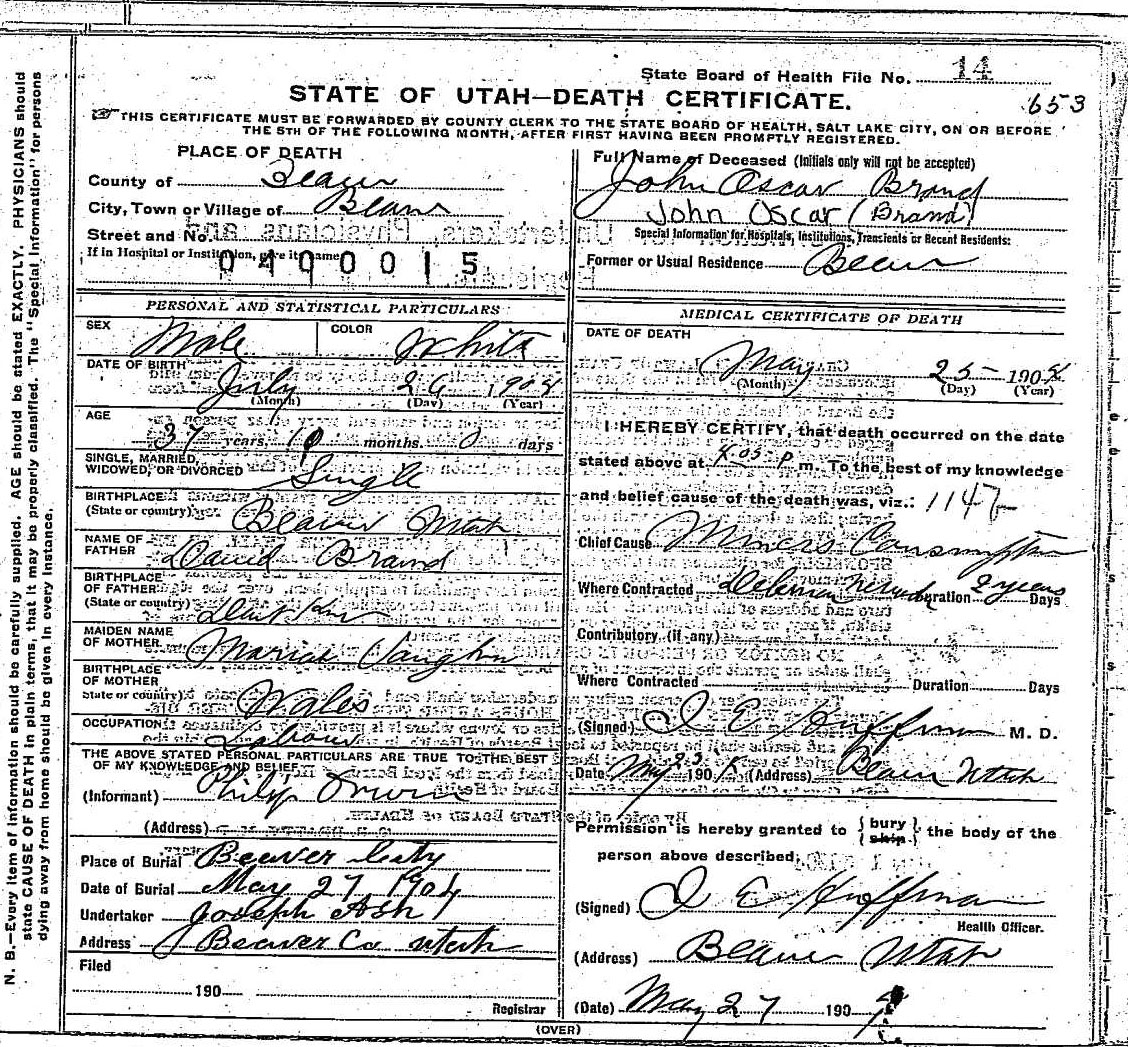 State Board of Health File No. 14
STATE OF UTAH—DEATH CERTIFICATE.
653
THIS CERTIFICATE MUST BE FORWARDED BY COUNTY CLERK TO THE STATE BOARD OF HEALTH, SALT LAKE CITY, ON OR BEFORE
THE 5TH OF THE FOLLOWING MONTH, AFTER FIRST HAVING BEEN PROMPTLY REGISTERED.
PLACE OF DEATH
County of Beaver
City, Town or Village of Beaver
Street and No.
If in Hospital or Institution, give its name
0400015
Full Name of Deceased (Initials only will not be accepted)
John Oscar Brand
John Oscar (Brand)
Special Information for Hospitals, Institutions, Transients or Recent Residents:
Former or Usual Residence Beaver
PERSONAL AND STATISTICAL PARTICULARS
SEX Male COLOR White
DATE OF BIRTH July 26 1904
(Month) (Day) (Year)
AGE 37 years 10 months 0 days
SINGLE, MARRIED,
WIDOWED, OR DIVORCED Single
BIRTHPLACE
(State or country) Beaver Utah
NAME OF
FATHER David Brand
BIRTHPLACE
OF FATHER
(State or country)
MAIDEN NAME
OF MOTHER Maria Vaughn
BIRTHPLACE
OF MOTHER
State or country) Wales
OCCUPATION
THE ABOVE STATED PERSONAL PARTICULARS ARE TRUE TO THE BEST
OF MY KNOWLEDGE AND BELIEF
(Informant) Philip
(Address)
Place of Burial Beaver City
Date of Burial May 27 1904
Undertaker Joseph Ash
Address Beaver Co Utah
Filed
190
Registrar
MEDICAL CERTIFICATE OF DEATH
DATE OF DEATH
May 25 1904
(Month) (Day) (Year)
I HEREBY CERTIFY, that death occurred on the date
stated above at 4.05 P m. To the best of my knowledge
and belief cause of the death was, viz.: 1147
Chief Cause Miners Consumption
Where Contracted Delamar Nevada Duration 2 years Days
Contributory (if any)
Where Contracted Duration Days
(Signed) J E Huffman M. D.
Date May 190 (Address) Beaver Utah
Permission is hereby granted to {bury ship} the body of the
person above described;
(Signed) J E Huffman
Health Officer.
(Address) Beaver Utah
(Date) May 27 190
(OVER)
N. B.—Every item of information should be carefully supplied. AGE should be stated EXACTLY. PHYSICIANS should
state CAUSE OF DEATH in plain terms, that it may be properly classified. The "Special Information" for persons
dying away from home should be given in every instance.